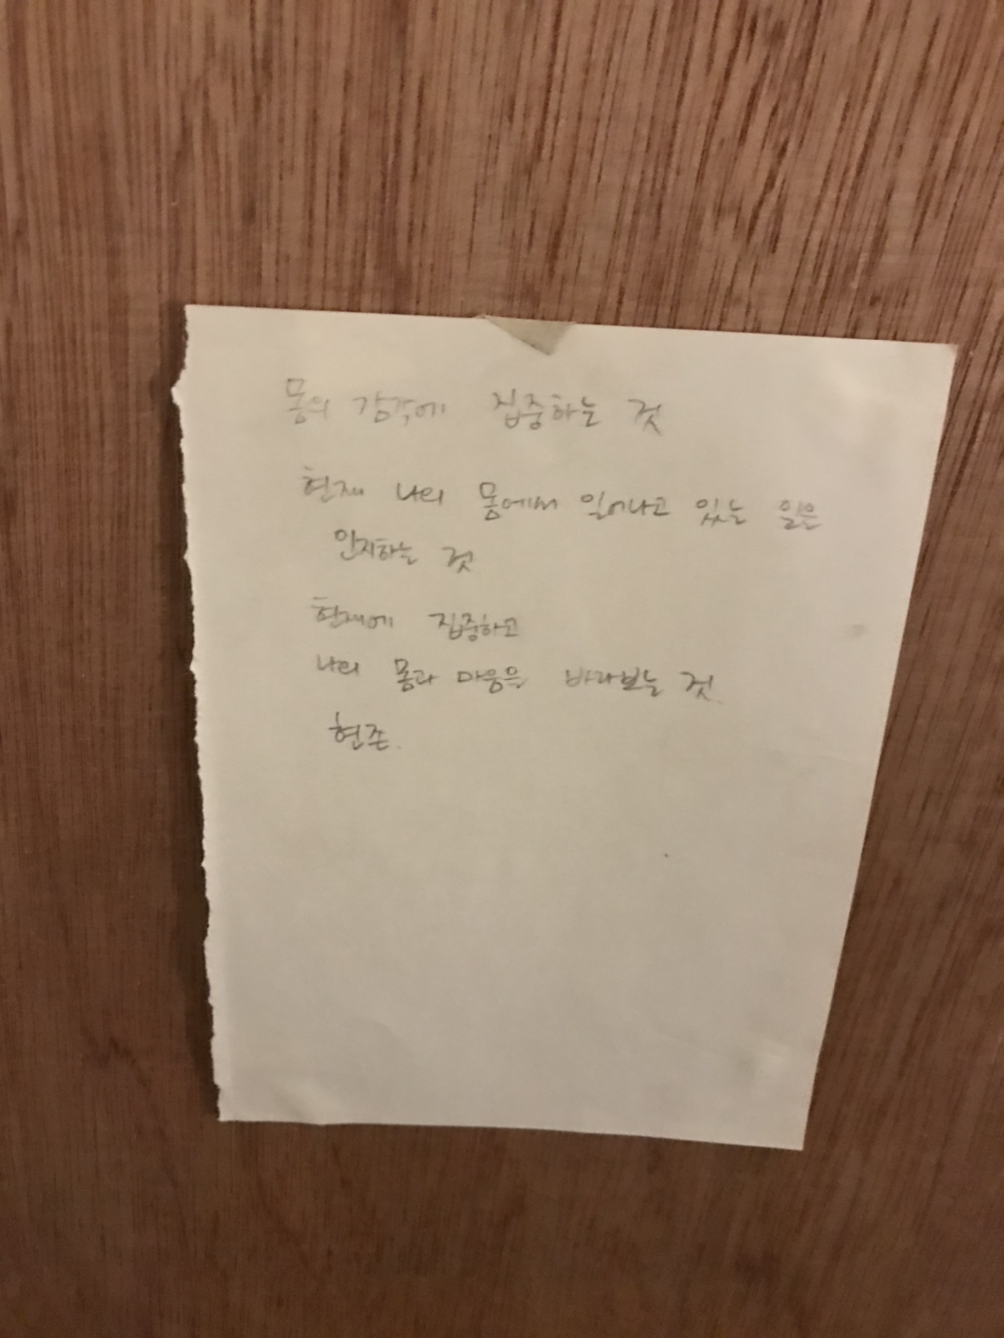 몸의 감각에 집중하는 것
현재 나의 몸에서 일어나고 있는 일을
인지하는 것
현재에 집중하고
나의 몸과 마음을 바라보는 것.
현존.